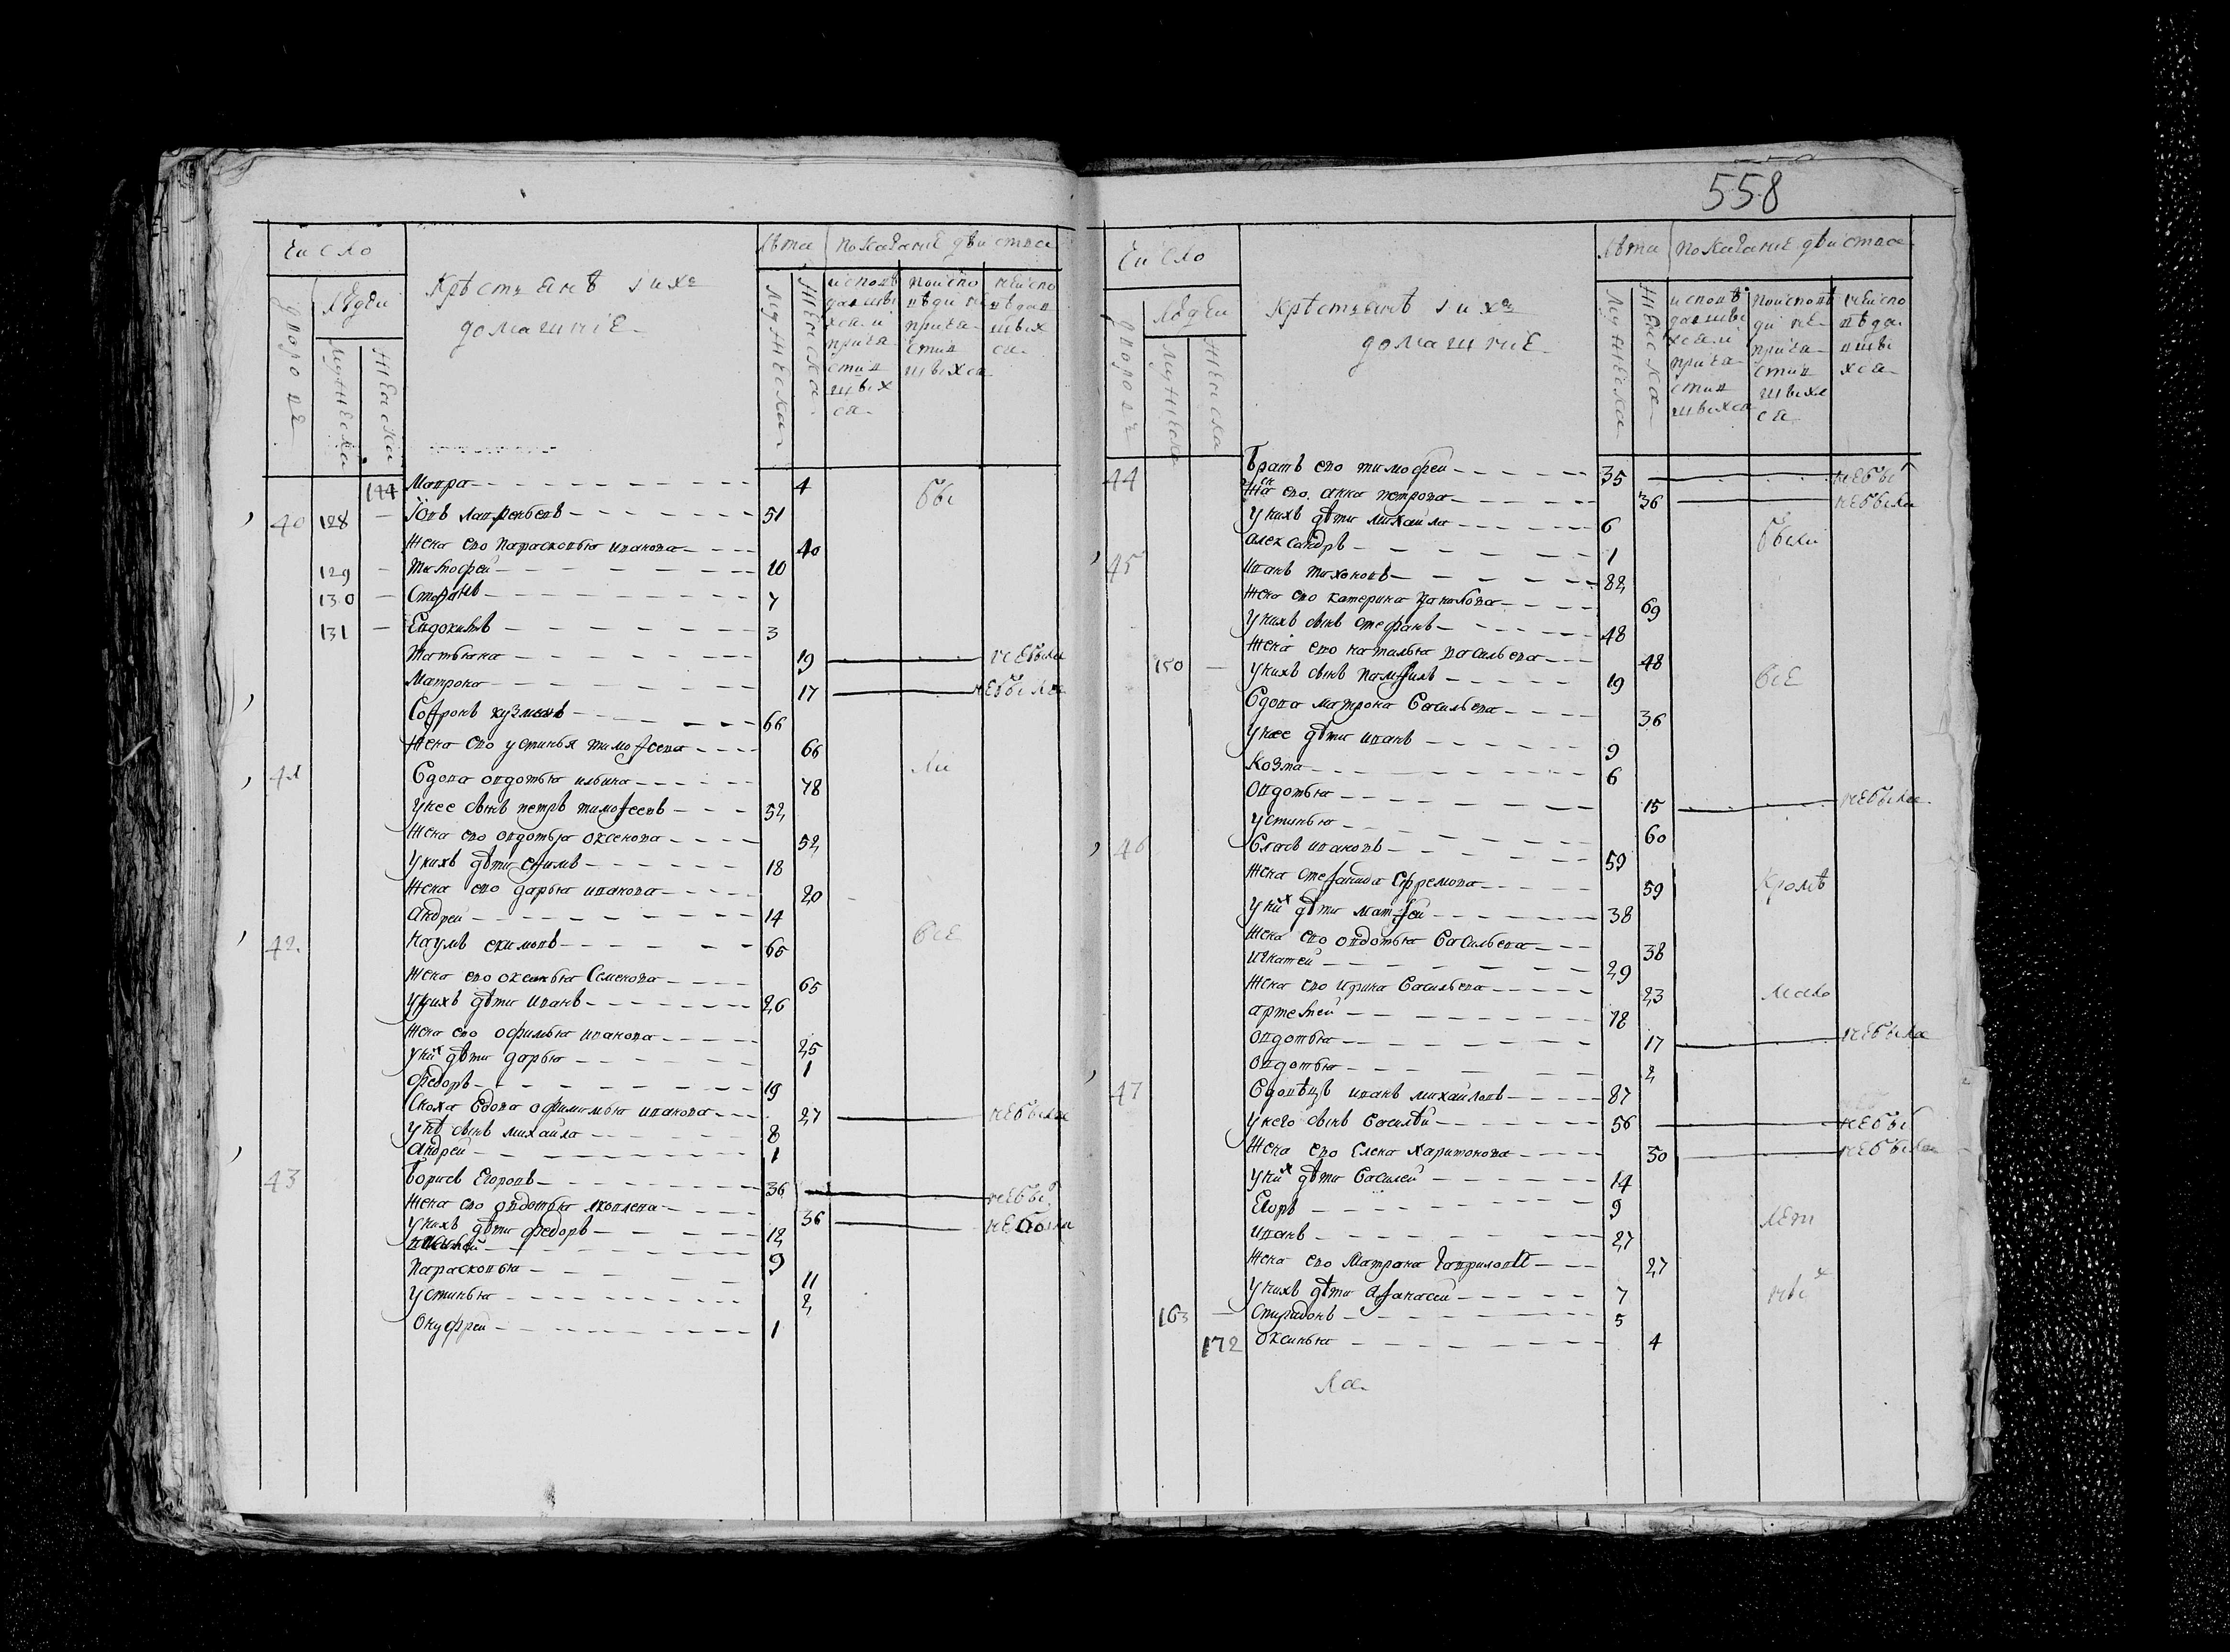 число
дворовъ
людеи
мужеска
женска
Крѣстьянѣ і ихъ
домашніе
лѣта
мужеска
женска
показаніе дѣиства
исповѣдавшихся и причастившихся
по исповѣди не причастившихся
не исповѣдавшихся
Мавра 4
бы
40 128 Iовъ лаврентьевъ 51
жена ево Парасковья иванова 40
129 тимофеи 10
130 Стефанъ 7
131 Евдокимъ 3
татьяна 19 не была
Матрона 17 не была
Софронъ кузминъ 66
жена ево устинья тимофеева 66
ли
41 Вдова авдотья ильина 78
у нее сынъ петръ тимофеевъ 52
жена ево овдотья оксенова 52
у нихъ дѣти ефимъ 18
жена ево дарья иванова 20
андреи 14
все
42 наумъ екимовъ 65
жена ево оксинья Семенова 65
у нихъ дѣти иванъ 26
жена ево офимья иванова 25
у них дѣти дарья 1
федоръ 19
Сноха вдова иванова 27 не была
у неѣ сынъ михаила 8
андреи 1
43 борисъ Егоровъ 36 не бы
жена ево овдотья яковлева 36 не была
у нихъ дѣти федоръ 12
9
парасковья 11
устинья 2
онуфреи 1
558
число
дворовъ
людеи
мужеска
женска
крѣстьянѣ і ихъ
домашніе
лѣта
мужеска
женска
показаніе дѣиства
исповѣдавшихся и причастившихся
по исповѣди не причастившихся
не исповѣдавшихся
44 братъ ево тимофеи 35 не бы
жена ево анна петрова 36 не была
у нихъ дѣти михаила 6
были
александръ 1
45 иванъ тихоновъ 82
жена ево катерина данилова 69
у нихъ сынъ стефанъ 48
жена ево наталья васильева 48
150 у нихъ сынъ памфилъ 19
все
вдова матрона васильева 36
у нее дѣти иванъ 9
козма 6
овдотья 15 не была
устинья 60
46 Власъ ивановъ 59
жена стефанида ефремова 59
кромѣ
у них дѣти матфеи 38
жена ево овдотья васильева 38
игнатеи 29
жена ево ирина васильева 23
мало
артемеи 18
овдотья 17 не была
овдотья 2
47 вдовецъ иванъ михаиловъ 87
у него сынъ василѣи 56 не бы
жена ево Елена харитонова 30 не была
у них дѣти василеи 14
Егоръ 9
лет
иванъ 27
жена ево Матрона гаврилова 27
у нихъ дѣти афанасеи 7
ных
163 спиридонъ 5
172 оксинья 4
ла